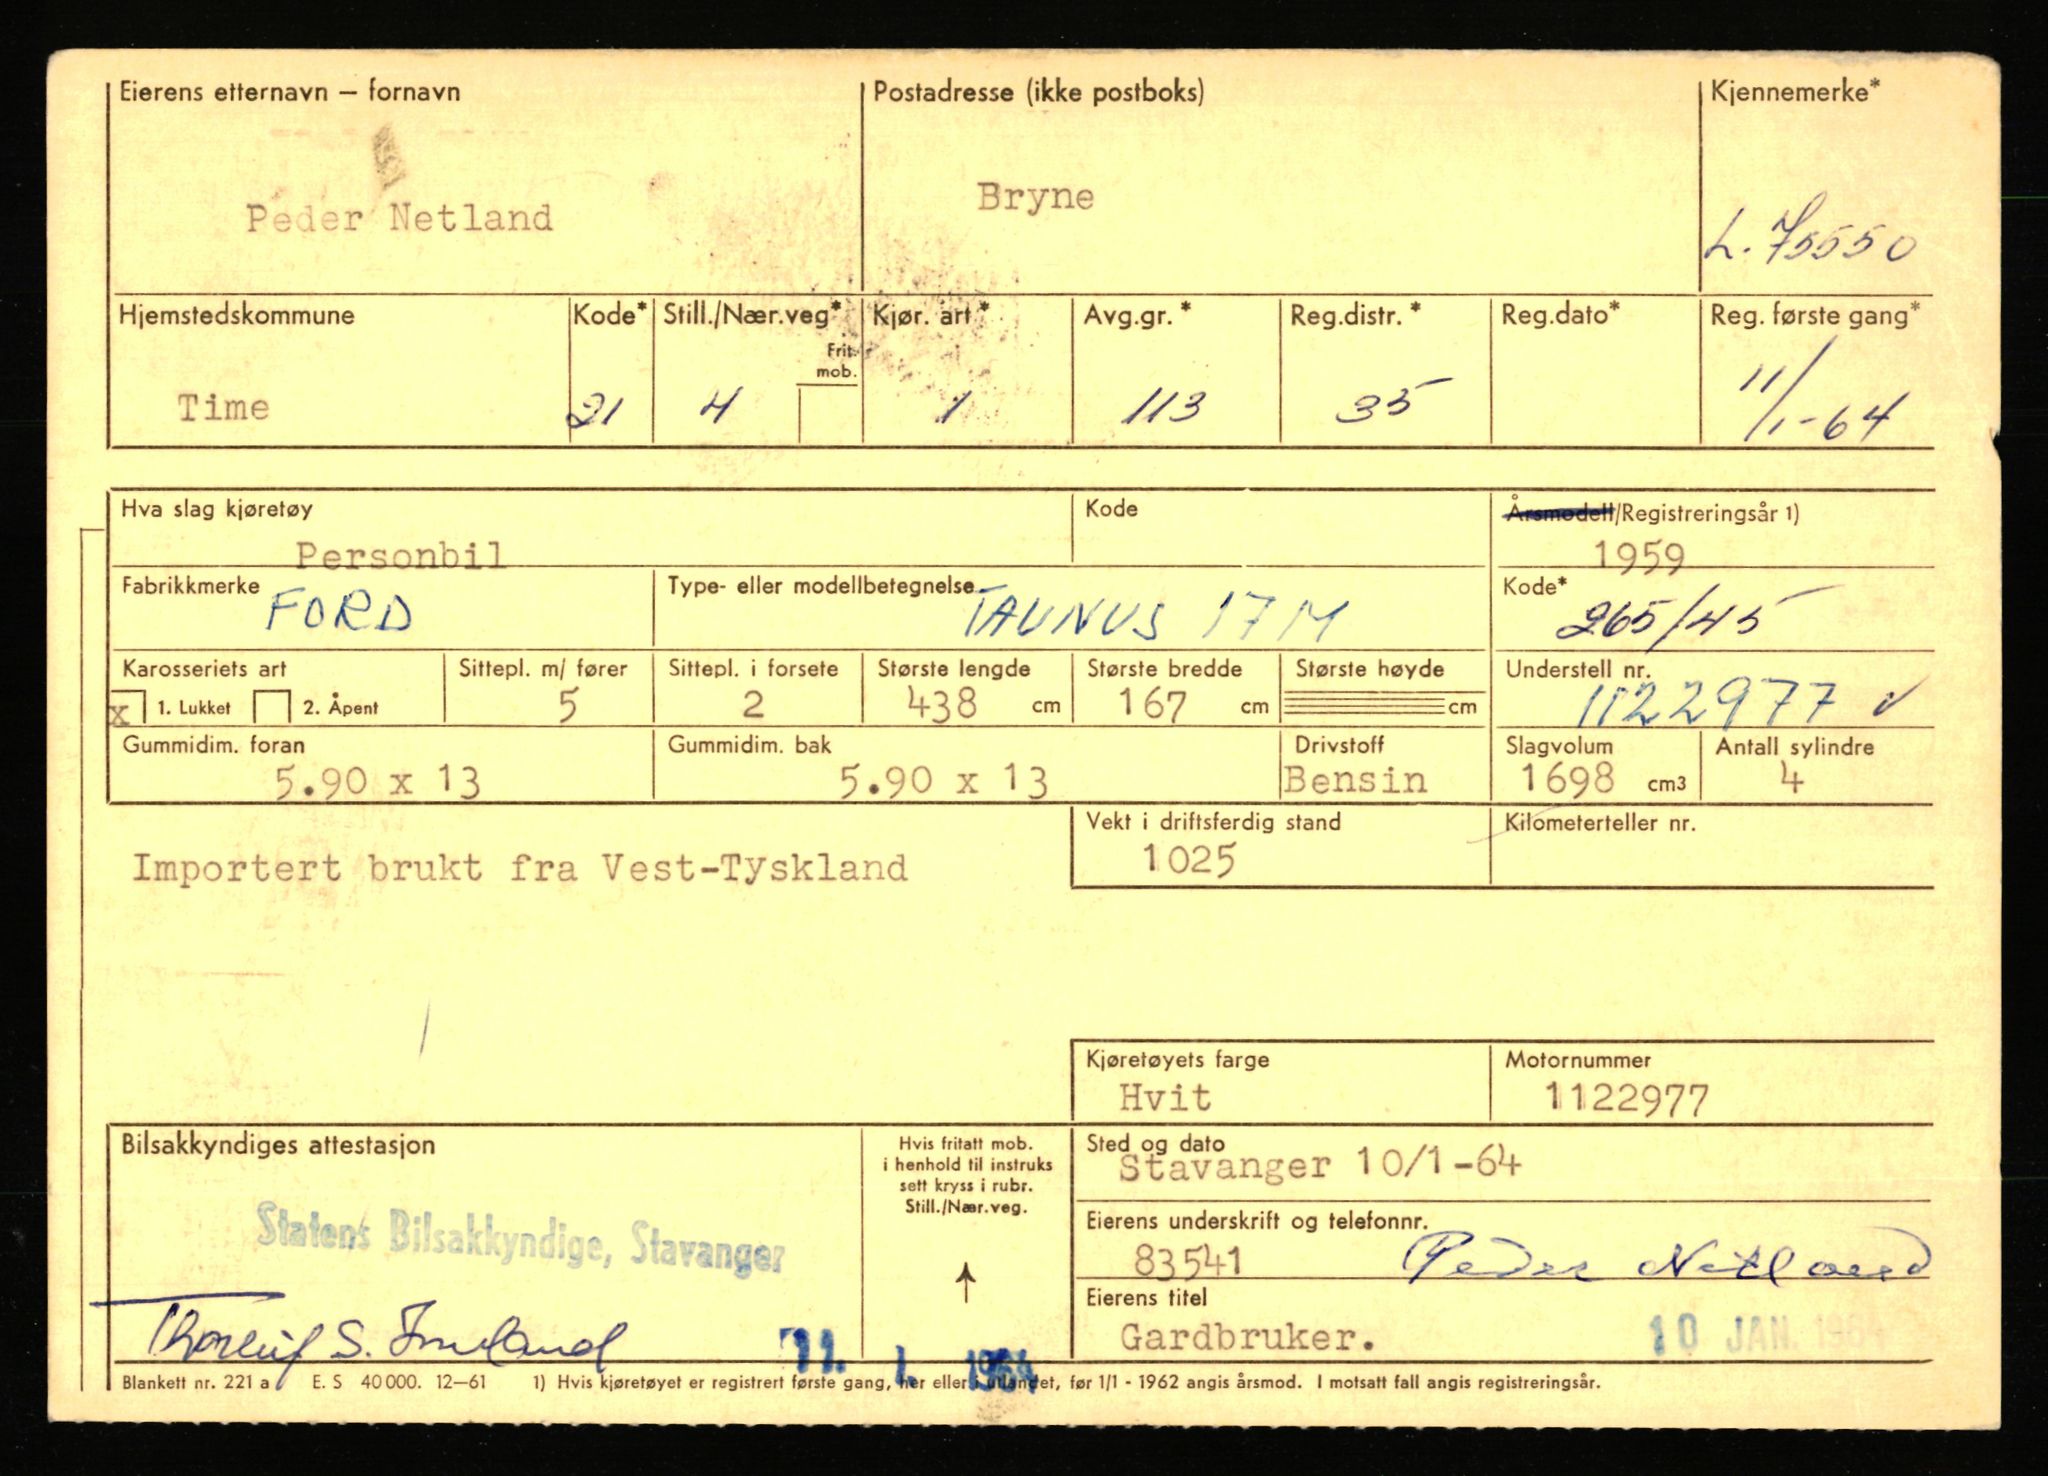 Eierens etternavn – fornavn
Postadresse (ikke postboks)
Kjennemerke*
Peder Netland
Bryne
L. 75550
Hjemstedskommune
Kode*
Still./Nær.veg*
Frit.
mob.
Kjør. art*
Avg.gr.*
Reg.distr.*
Reg.dato*
Reg. første gang*
Time
21
4
1
113
35
11/1-64
Hva slag kjøretøy
Kode
Årsmodell/Registreringsår 1)
Personbil
1959
Fabrikkmerke
FORD
Type- eller modellbetegnelse
TAUNUS 17M
Kode*
265/45
Karosseriets art
x 1. Lukket
2. Åpent
Sittepl. m/ fører
5
Sittepl. i forsete
2
Største lengde
438 cm
Største bredde
167 cm
Største høyde
cm
Understell nr.
1122977 ✓
Gummidim. foran
5.90 x 13
Gummidim. bak
5.90 x 13
Drivstoff
Bensin
Slagvolum
1698 cm3
Antall sylindre
4
Vekt i driftsferdig stand
1025
Kilometerteller nr.
Importert brukt fra Vest-Tyskland
Kjøretøyets farge
Hvit
Motornummer
1122977
Bilsakkyndiges attestasjon
Statens Bilsakkyndige, Stavanger
Thorleif S.
11. 1. 1964
Hvis fritatt mob.
i henhold til instruks
sett kryss i rubr.
Still./Nær.veg.
Sted og dato
Stavanger 10/1-64
Eierens underskrift og telefonnr.
83541 Peder Netland
Eierens titel
Gardbruker.
10 JAN. 1964
Blankett nr. 221 a E. S 40 000. 12–61 1) Hvis kjøretøyet er registrert første gang, her eller i utlandet, før 1/1 - 1962 angis årsmod. I motsatt fall angis registreringsår.